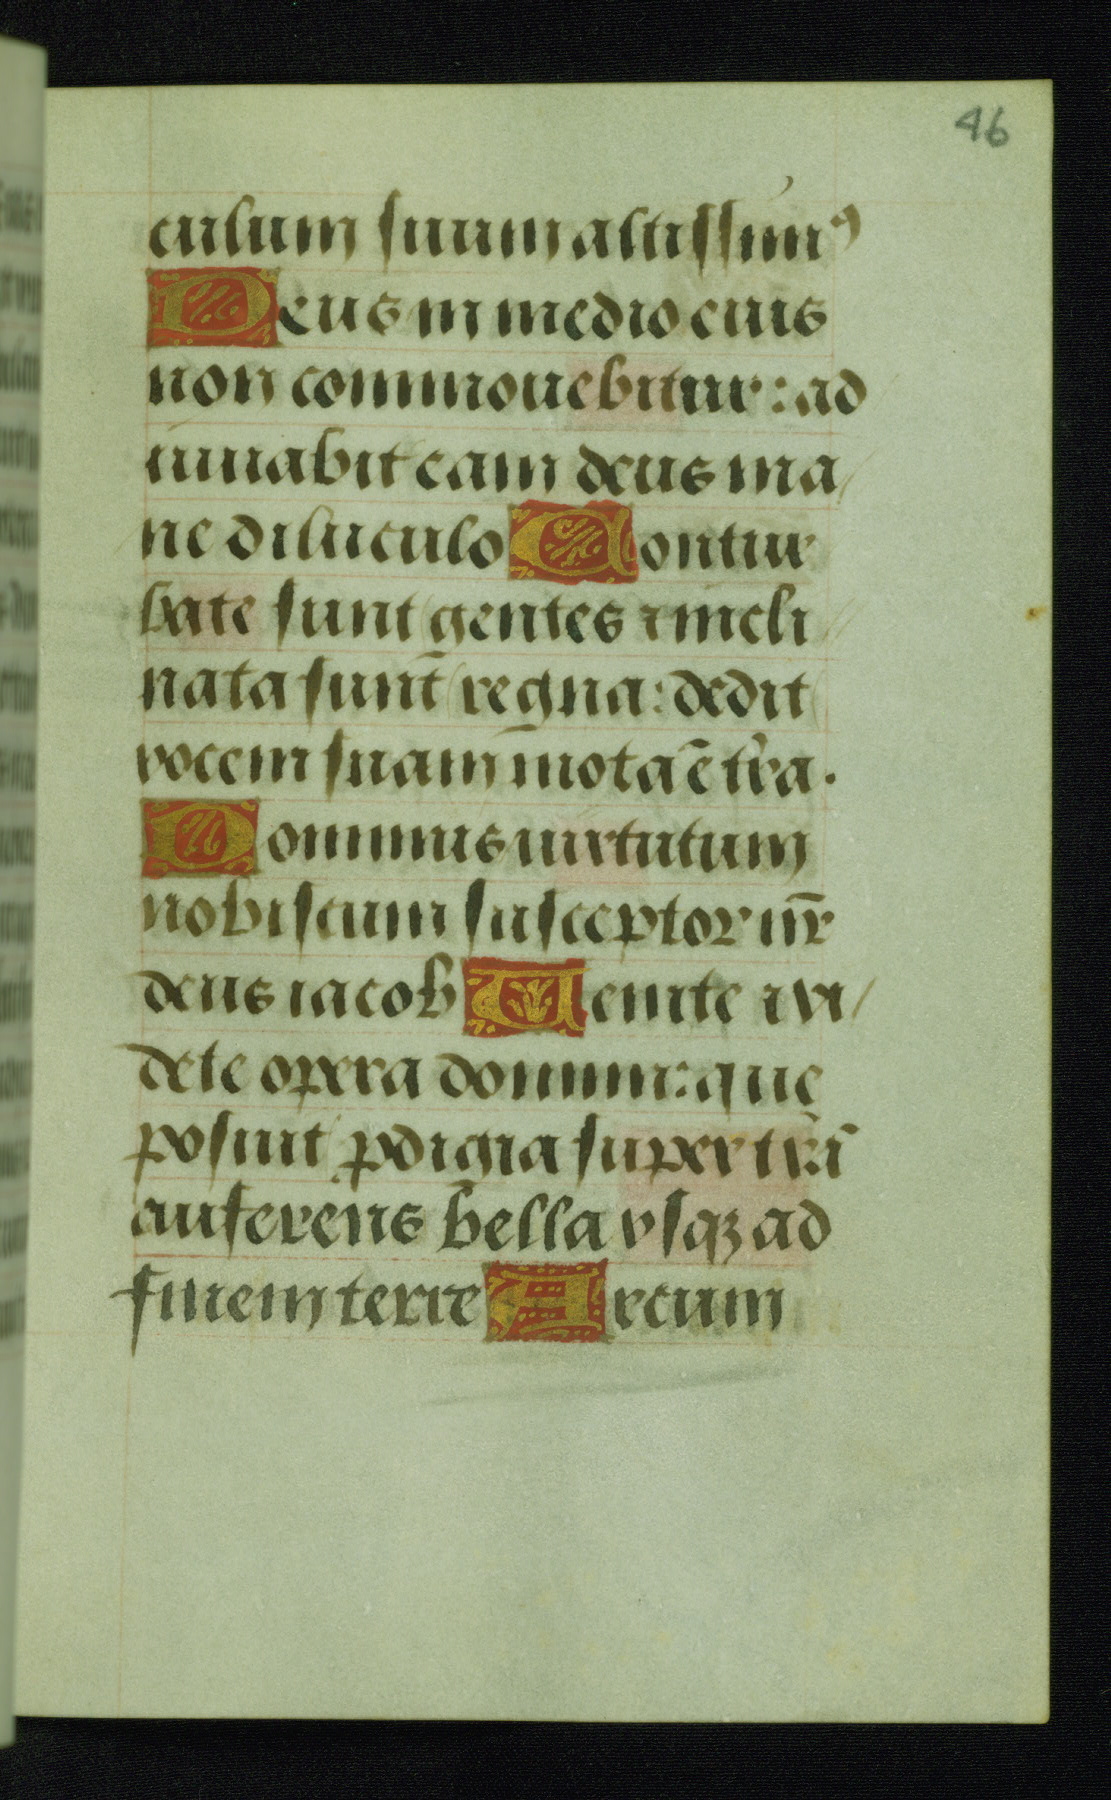 46
culum suum altissimꝰ
Deus in medio eius
non commouebitur: ad
iuuabit eam deus ma/
ne diluculo Contur
bate sunt gentes ⁊ incli
nata sunt̄ regna: dedit
vocem suam mota ē tr̄a.
Dominus uirtutum
nobiscum susceptor nr̄
deus iacob Uenite ⁊ vi/
dete opera domini: que
posuit ꝓdigia super tr̄ā
auferens bella vsqꝫ ad
finem terre Arcum